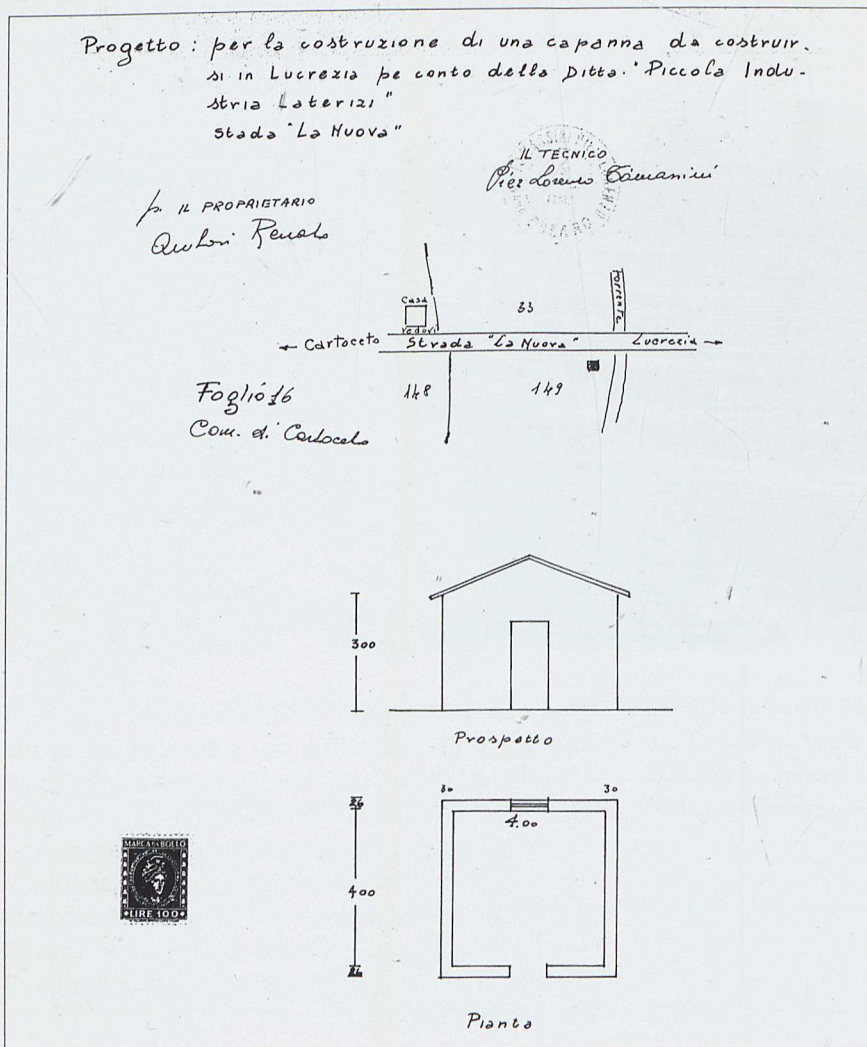 Progetto : per la costruzione di una capanna da costruir.
si in Lucrezia pe conto della Ditta. "Piccola Indu-
stria Laterizi"
Stada "La Nuova"
IL TECNICO
Pier Lorenzo
p. IL PROPRIETARIO
Renato
Casa
Vedovi
33
Torrente
← Cartoceto
Strada "La Nuova"
Lucrezia →
Foglio 16
148
149
Com. di Cartoceto
300
Prospetto
30
30
26
4.00
400
26
MARCA DA BOLLO
LIRE 100
Pianta